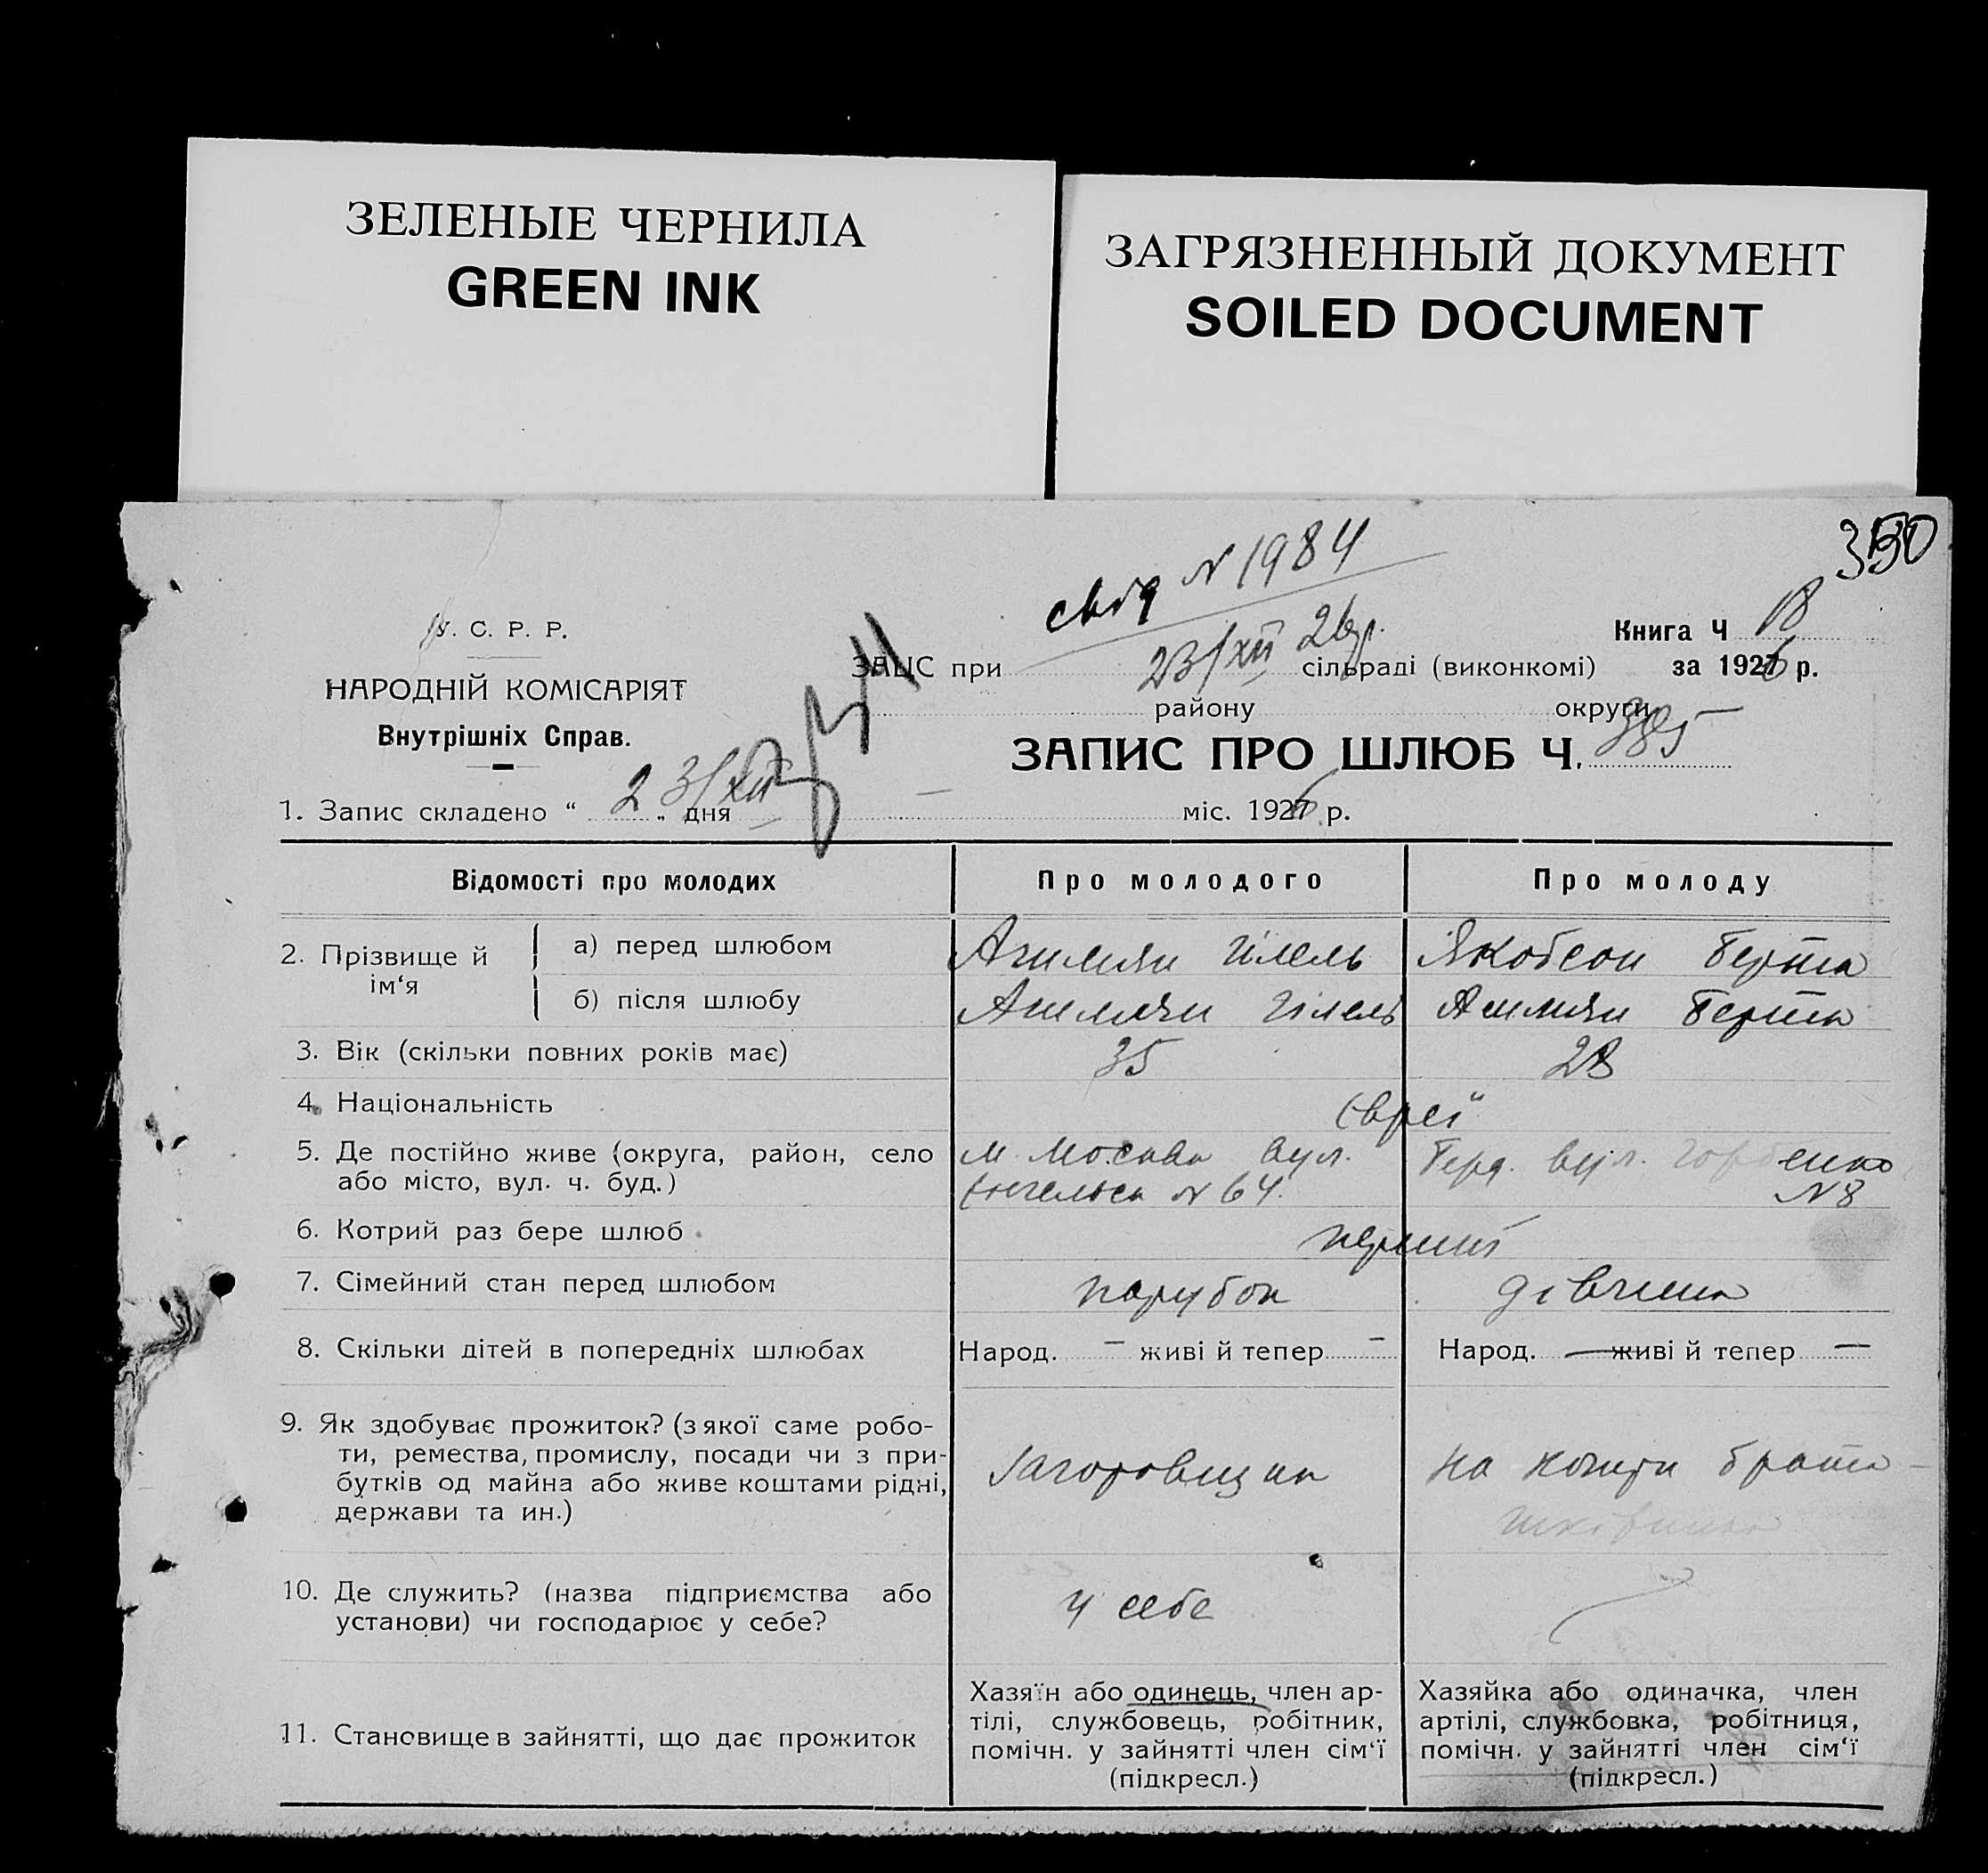 ЗЕЛЕНЫЕ ЧЕРНИЛА
GREEN INK
ЗАГРЯЗНЕННЫЙ ДОКУМЕНТ
SOILED DOCUMENT
свід N 1984
23/XII 26р.
У. С. Р. Р.
НАРОДНІЙ КОМІСАРІЯТ
Внутрішніх Справ.
Книга Ч 18
ЗАЦС при сільраді (виконкомі) за 1926 р.
району округи
ЗАПИС ПРО ШЛЮБ Ч. 385
1. Запис складено " 23/XII " дня міс. 1926 р.
Відомості про молодих Про молодого Про молоду
2. Прізвище й ім‘я
а) перед шлюбом Гілель Якобсон Берта
б) після шлюбу Гілель Берта
3. Вік (скільки повних років має) 35 28
4. Національність Євреї
5. Де постійно живе (округа, район, село м. Москва вул. Берд. вул.
або місто, вул. ч. буд.) Енгельса N 64. N 8
6. Котрий раз бере шлюб перший
7. Сімейний стан перед шлюбом парубок дівчина
8. Скільки дітей в попередніх шлюбах Народ. – живі й тепер – Народ. — живі й тепер —
9. Як здобуває прожиток? (з якої саме робо-
ти, ремества, промислу, посади чи з при-
бутків од майна або живе коштами рідні,
держави та ин.)
на кошти брата
10. Де служить? (назва підприємства або
установи) чи господарює у себе?
у себе
11. Становище в зайнятті, що дає прожиток
Хазяїн або одинець, член ар-
тілі, службовець, робітник,
помічн. у зайнятті член сім‘ї
(підкресл.)
Хазяйка або одиначка, член
артілі, службовка, робітниця,
помічн. у зайнятті член сім‘ї
(підкресл.)